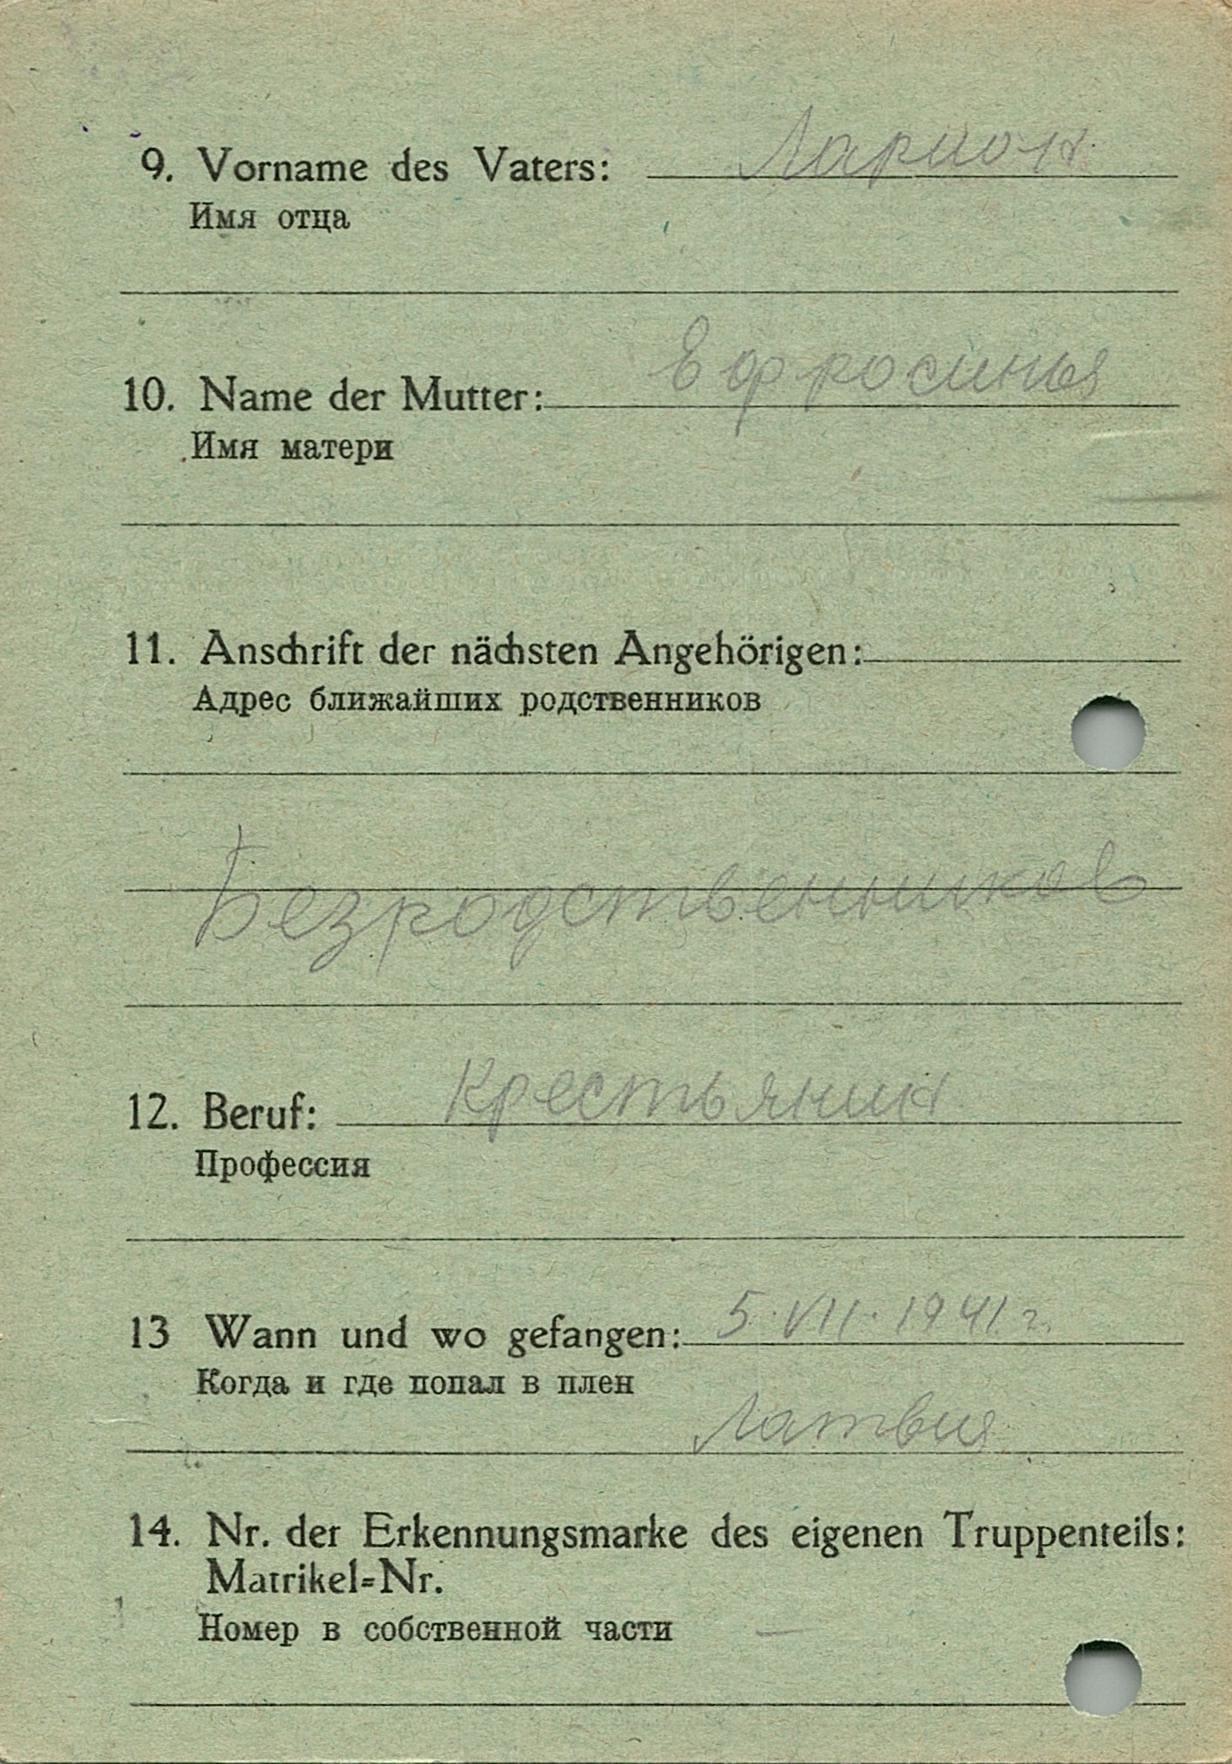 9. Vorname des Vaters: Ларион
Имя отца
10. Name der Mutter: Ефросинья
Имя матери
11. Anschrift der nächsten Angehörigen:
Адрес ближайших родственников
Безродственников
12. Beruf: Крестьянин
Профессия
13 Wann und wo gefangen: 5·VII·1941 г.
Когда и где попал в плен
Латвия
14. Nr. der Erkennungsmarke des eigenen Truppenteils:
Matrikel-Nr.
Номер в собственной части —